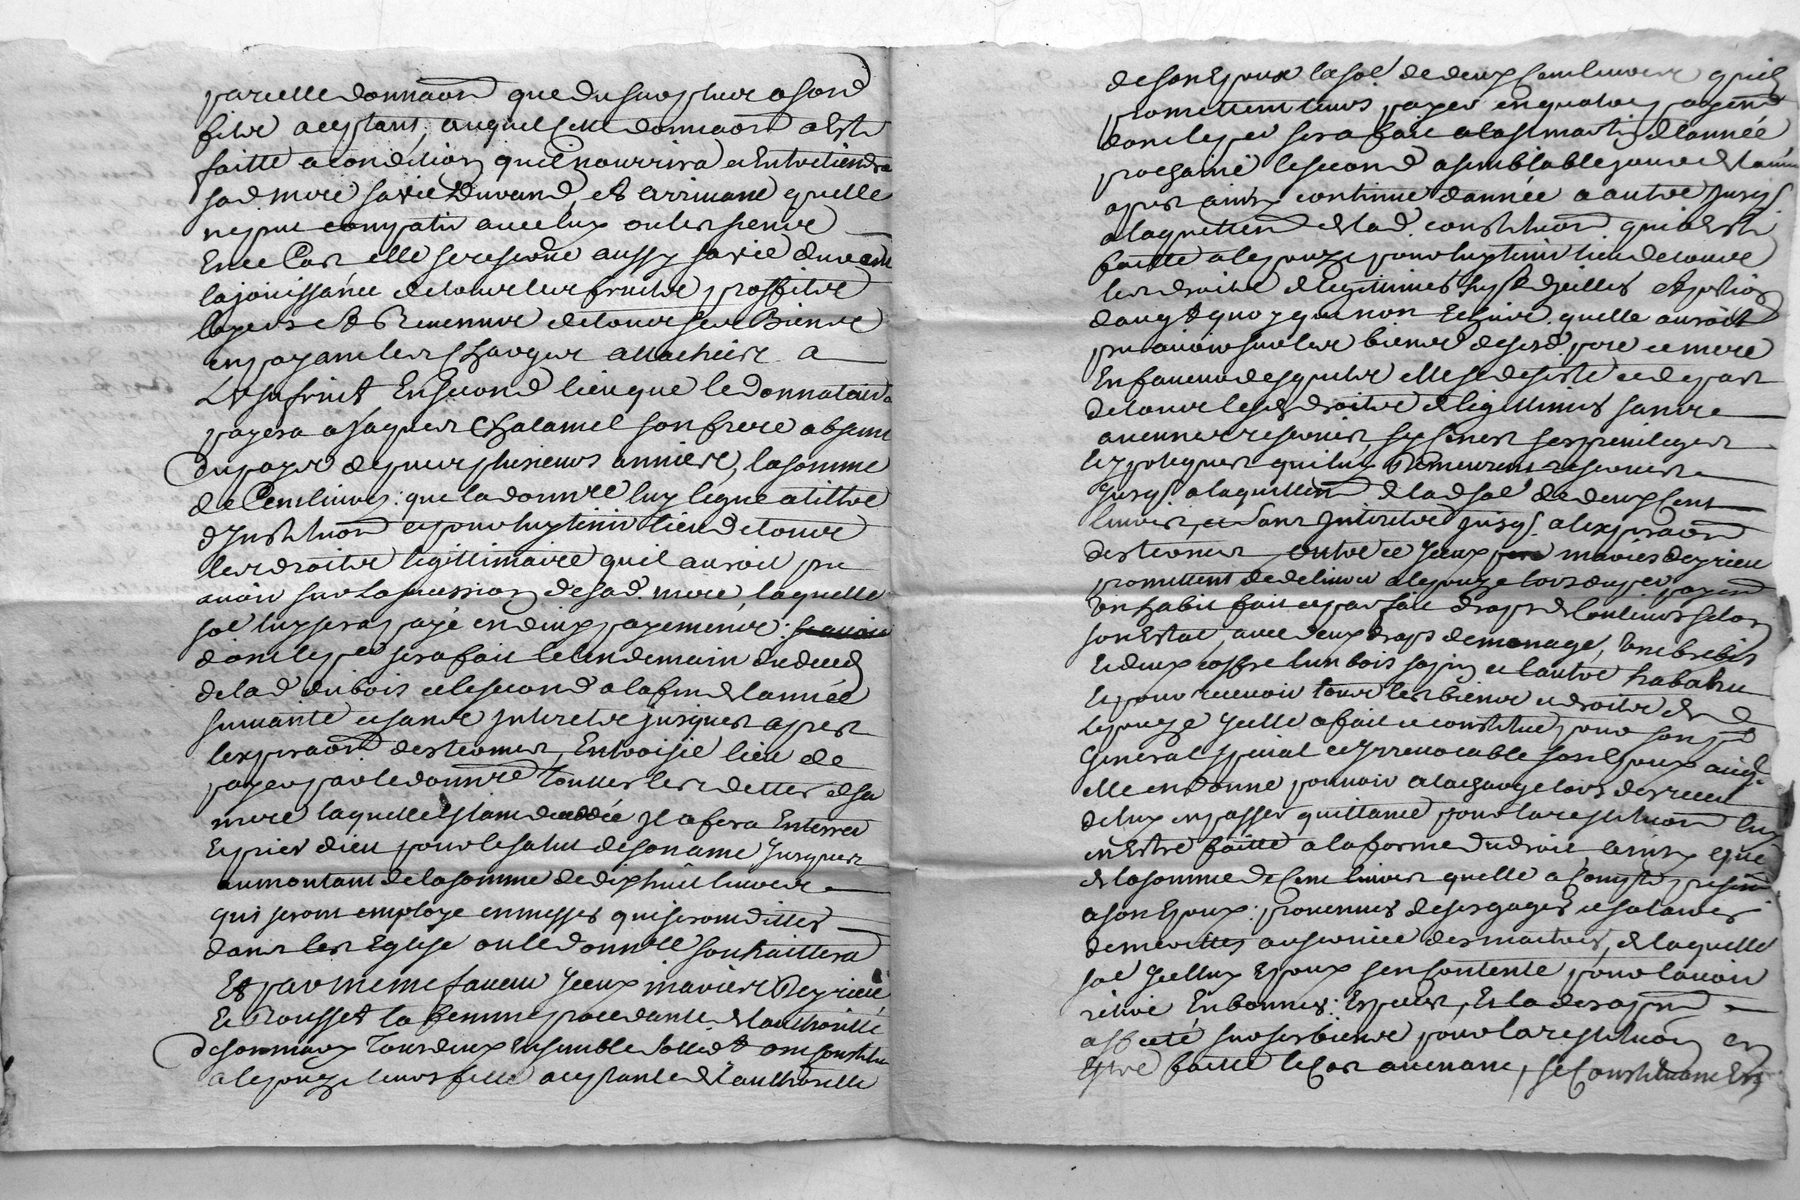 par icelle donnaon que du surplus a sond
filz aceptant, auquel cette donnaon a esté
faitte a condition quil nourrira et entretiendra
sad mere sa vie durand, et arrivant quelle
ne put compatir avec lux ou les siens
en ce cas elle se reserve aussy sa vie durant
la jouissance de tous les fruits proffits
loyers et revenus de tous ses biens
en payant les charges attachées a
lusufruit En second lieu que le donnataire
payera a Jaques Chalamel son frere absent
du pays depuis plusieurs années, la somme
de Cent livres que la donnre luy legue a tiltre
dInstitution et pour luy tenir lieu de tous
les droits legittimaire quil auroit pu
avoir sur la succession de sad. mere, laquelle
soe luy sera payé en deux payements
dont le per sera fait le lendemain du deced
de lad dubois et le second a la fin de lannée
suivante et sans interets jusques apres
lexpiraon des termes, En troisie lieu de
payer par le donnre touttes les dettes de sa
mere laquelle estant deceddée Il a fera enterrer
et prier dieu pour le salut de son ame jusques
au montant de la somme de dixhuit livres
qui seront employé en messes qui seront dittes
dans les Eglise ou le donnre souhaittera
Et par meme faveur Iceux mariés Peyrieu
et Rousset la femme procedante de lauthorité
de son mary tous deux ensemble sollidt ont constitué
a lepouze leur fille aceptante de lauthorité
de son Epoux la soe de deux cent livres quils
promettent leurs payer en quatre payent
dont le per sera fait a la st martin de lannée
prochaine le second a semblable jour de lannée
apres ainsy continué dannée a autre jusqs.
a laquittent de lad. constituon qui a esté
faitte a lepouze pour luy tenir lieu de tous
les droits de legittimes
quelle auroit
pu avoir sur les biens de sesd. pere et mere
En faveur desquels elle se desiste et depart
de tous lesd droits de legittimes sans
aucunnes reserves sy ce nest ses privileges
hypoteques qui luy demeurent reservés
jusqs. a laquittent de lad soe de deux cent
livres, et sans interets jusqs. a lexpiraon
des termes outre ce Iceux mariés de yrieu
promettent de delivrer a lepouze lors du per payent
un habit fait et parfait drap de couleurs selon
son Estat, avec deux draps de menage, une brebis
et deux coffre lun bois sapin et lautre
Et pour recevoir tous les biens et droits de
lepouze Icelle a fait et constitué pour son pr
General special et Irrevocable son Epoux auql.
elle en donne pouvoir a la charge lors des receus
de lux en passer quittance pour la restituon luy
en Estre faitte a la forme du droit, ainsy que
de la somme de Cent livres quelle a compté present
a son Epoux provennus de ses gages et salaires
demerittes au service des maitres, de laquelle
soe Icelluy Epoux sen contente pour lavoir
retiré En bonnes Especes, Et la des apresent
affecté sur ses biens pour la restituon en
Estre faitte le cas avenant, se Constituant En